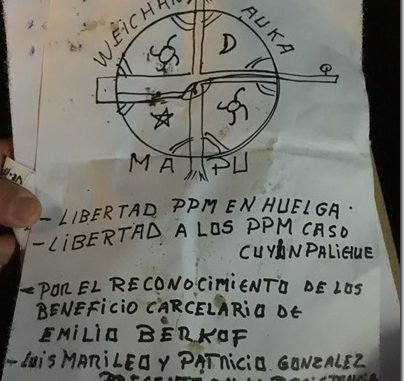 WEICHAN AUKA
MAPU
- LIBERTAD PPM EN HUELGA.
- LIBERTAD A LOS PPM CASO
CUYINPALIHUE
- POR EL RECONOCIMIENTO DE LOS
BENEFICIO CARCELARIO DE
EMILIO BERKOF
- LUIS MARILEO Y PATRICIO GONZALEZ